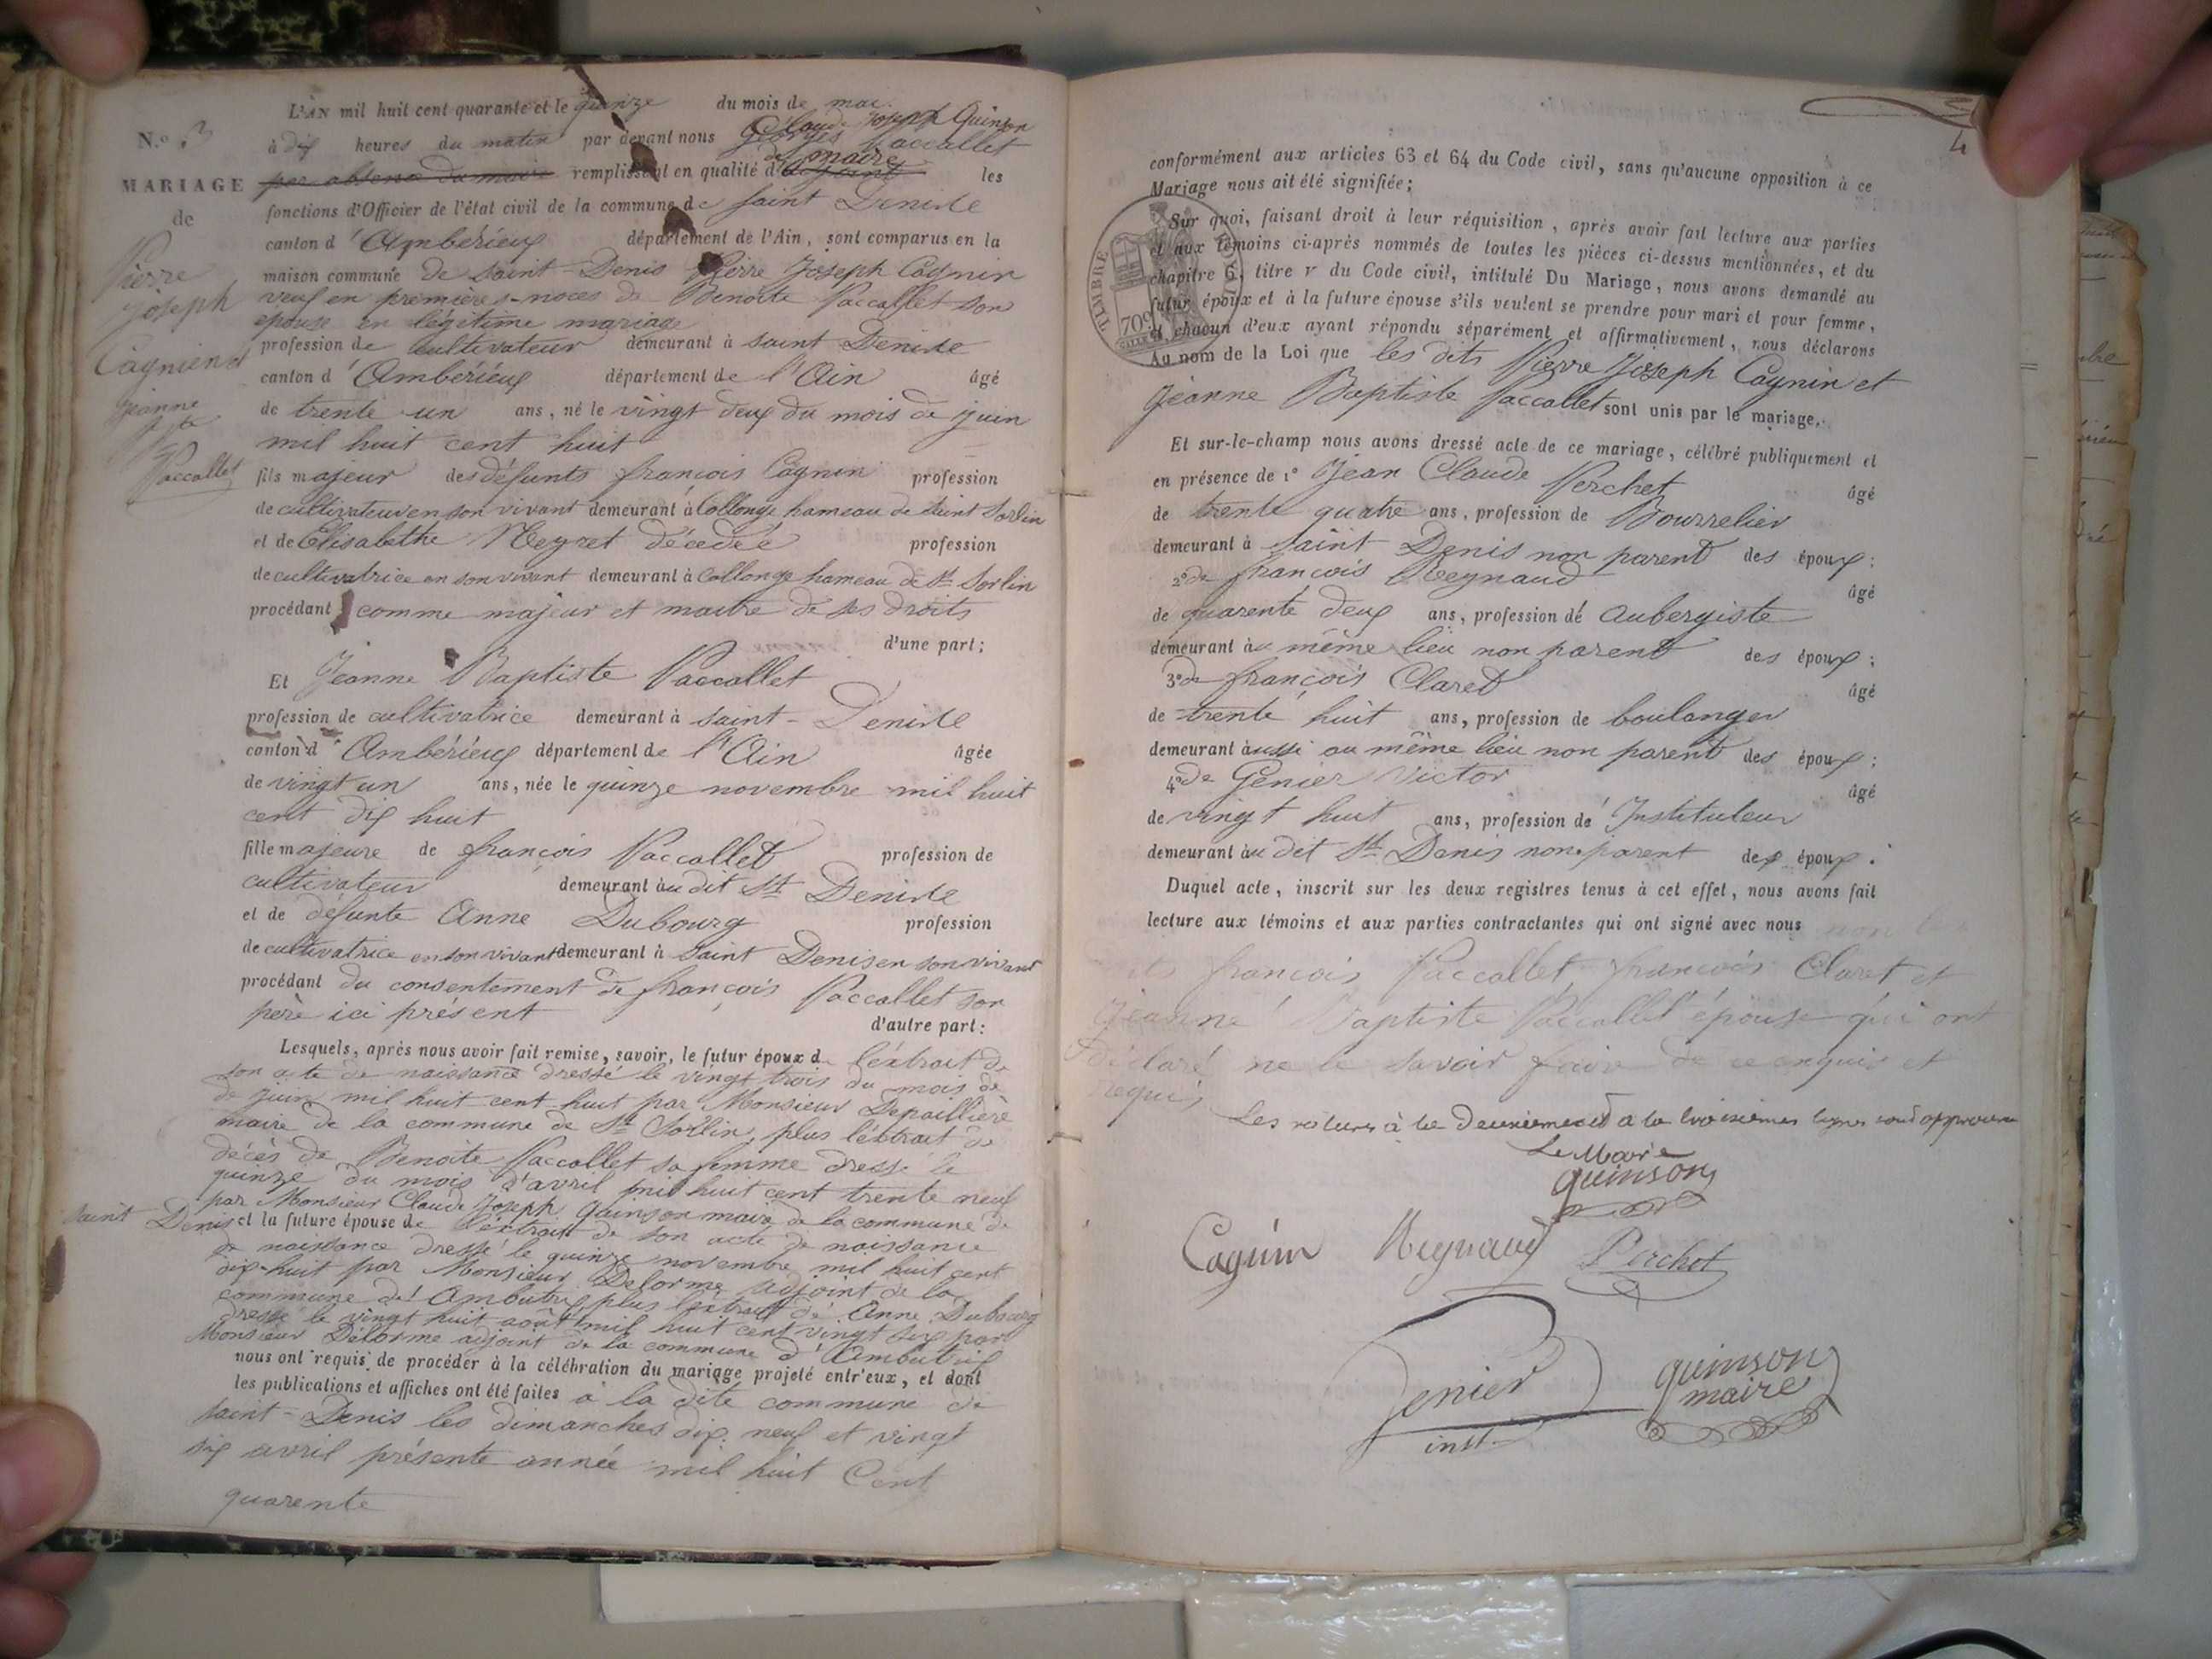 L'AN mil huit cent quarante et le quinze du mois de mai
N.º 3
à dix heures du matin par devant nous Claude Joseph Quinson
Georges Paccallet
par absence du maire remplissant en qualité de maire
d'adjoint les
MARIAGE
de
Pierre
Joseph
Cagnin et
Jeanne
Bte
Paccallet
fonctions d'Officier de l'état civil de la commune de saint Denis le
canton d'Ambérieux département de l'Ain, sont comparus en la
maison commune de saint-Denis Pierre Joseph Cagnin
veuf en premières-noces de Benoite Paccallet son
épouse en légitime mariage
profession de cultivateur demeurant à saint Denis le
canton d'Ambérieux département de l'Ain âgé
de trente un ans, né le vingt deux du mois de juin
mil huit cent huit
fils majeur des défunts françois Cagnin profession
de cultivateur en son vivant demeurant à Collonge hameau de Saint Sorlin
et de Elisabethe Neyret décédée profession
de cultivatrice en son vivant demeurant à Collonge hameau de St Sorlin
procédant comme majeur et maitre de ses droits
d'une part;
Et Jeanne Baptiste Paccallet
profession de cultivatrice demeurant à saint-Denis le
canton d'Ambérieux département de l'Ain âgée
de vingt un ans, née le quinze novembre mil huit
cent dix huit
fille majeure de françois Paccallet profession de
cultivateur demeurant au dit St Denis le
et de défunte Anne Dubourg profession
de cultivatrice en son vivant demeurant à saint Denis en son vivant
procédant du consentement de françois Paccallet son
père ici présent
d'autre part:
Lesquels, après nous avoir fait remise, savoir, le futur époux de l'extrait de
son acte de naissance dressé le vingt trois du mois de
de juin mil huit cent huit par Monsieur Depaillière
maire de la commune de St Sorlin, plus l'extrait de
décès de Benoite Paccallet sa femme dressé le
quinze du mois d'avril mil huit cent trente neuf
par Monsieur Claude Joseph Quinson maire de la commune de
saint Denis et la future épouse de l'extrait de son acte de naissance
de naissance dressé le quinze novembre mil huit cent
dix-huit par Monsieur Delorme adjoint de la
commune d'Ambutrix, plus l'extrait de Anne Dubourg
dressé le vingt huit août mil huit cent vingt six par
Monsieur Delorme adjoint de la commune d'Ambutrix
nous ont requis de procéder à la célébration du mariage projeté entr'eux, et dont
les publications et affiches ont été faites à la dite commune de
saint-Denis les dimanches dix-neuf et vingt
six avril présente année mil huit Cent
quarente
4
conformément aux articles 63 et 64 du Code civil, sans qu'aucune opposition à ce
Mariage nous ait été signifiée;
Sur quoi, faisant droit à leur réquisition, après avoir fait lecture aux parties
et aux témoins ci-après nommés de toutes les pièces ci-dessus mentionnées, et du
chapitre 6, titre v du Code civil, intitulé Du Mariage, nous avons demandé au
futur époux et à la future épouse s'ils veulent se prendre pour mari et pour femme,
et chacun d'eux ayant répondu séparément et affirmativement, nous déclarons
TIMBRE ROYAL
70c
Au nom de la Loi que les dits Pierre Joseph Cagnin et
Jeanne Baptiste Paccallet sont unis par le mariage.
Et sur-le-champ nous avons dressé acte de ce mariage, célébré publiquement et
en présence de 1º Jean Claude Perchet âgé
de trente quatre ans, profession de Bourrelier
demeurant à saint Denis non parent des époux:
2º de françois Reynaud âgé
de quarente deux ans, profession de Aubergiste
demeurant au même lieu non parent des époux:
3º de françois Claret âgé
de trente huit ans, profession de boulanger
demeurant aussi au même lieu non parent des époux:
4º de Génier Victor âgé
de vingt huit ans, profession de Instituteur
demeurant au dit St Denis non parent des époux.
Duquel acte, inscrit sur les deux registres tenus à cet effet, nous avons fait
lecture aux témoins et aux parties contractantes qui ont signé avec nous non les
dits françois Paccallet, françois Claret et
Jeanne Baptiste Paccallet épouse qui ont
déclaré ne le savoir faire de ce enquis et
requis
Les ratures à la deuxième et à la troisième lignes sont approuvées
Le Maire
quinson
Cagnin Reynaud Perchet
Genier
inst
quinson
maire